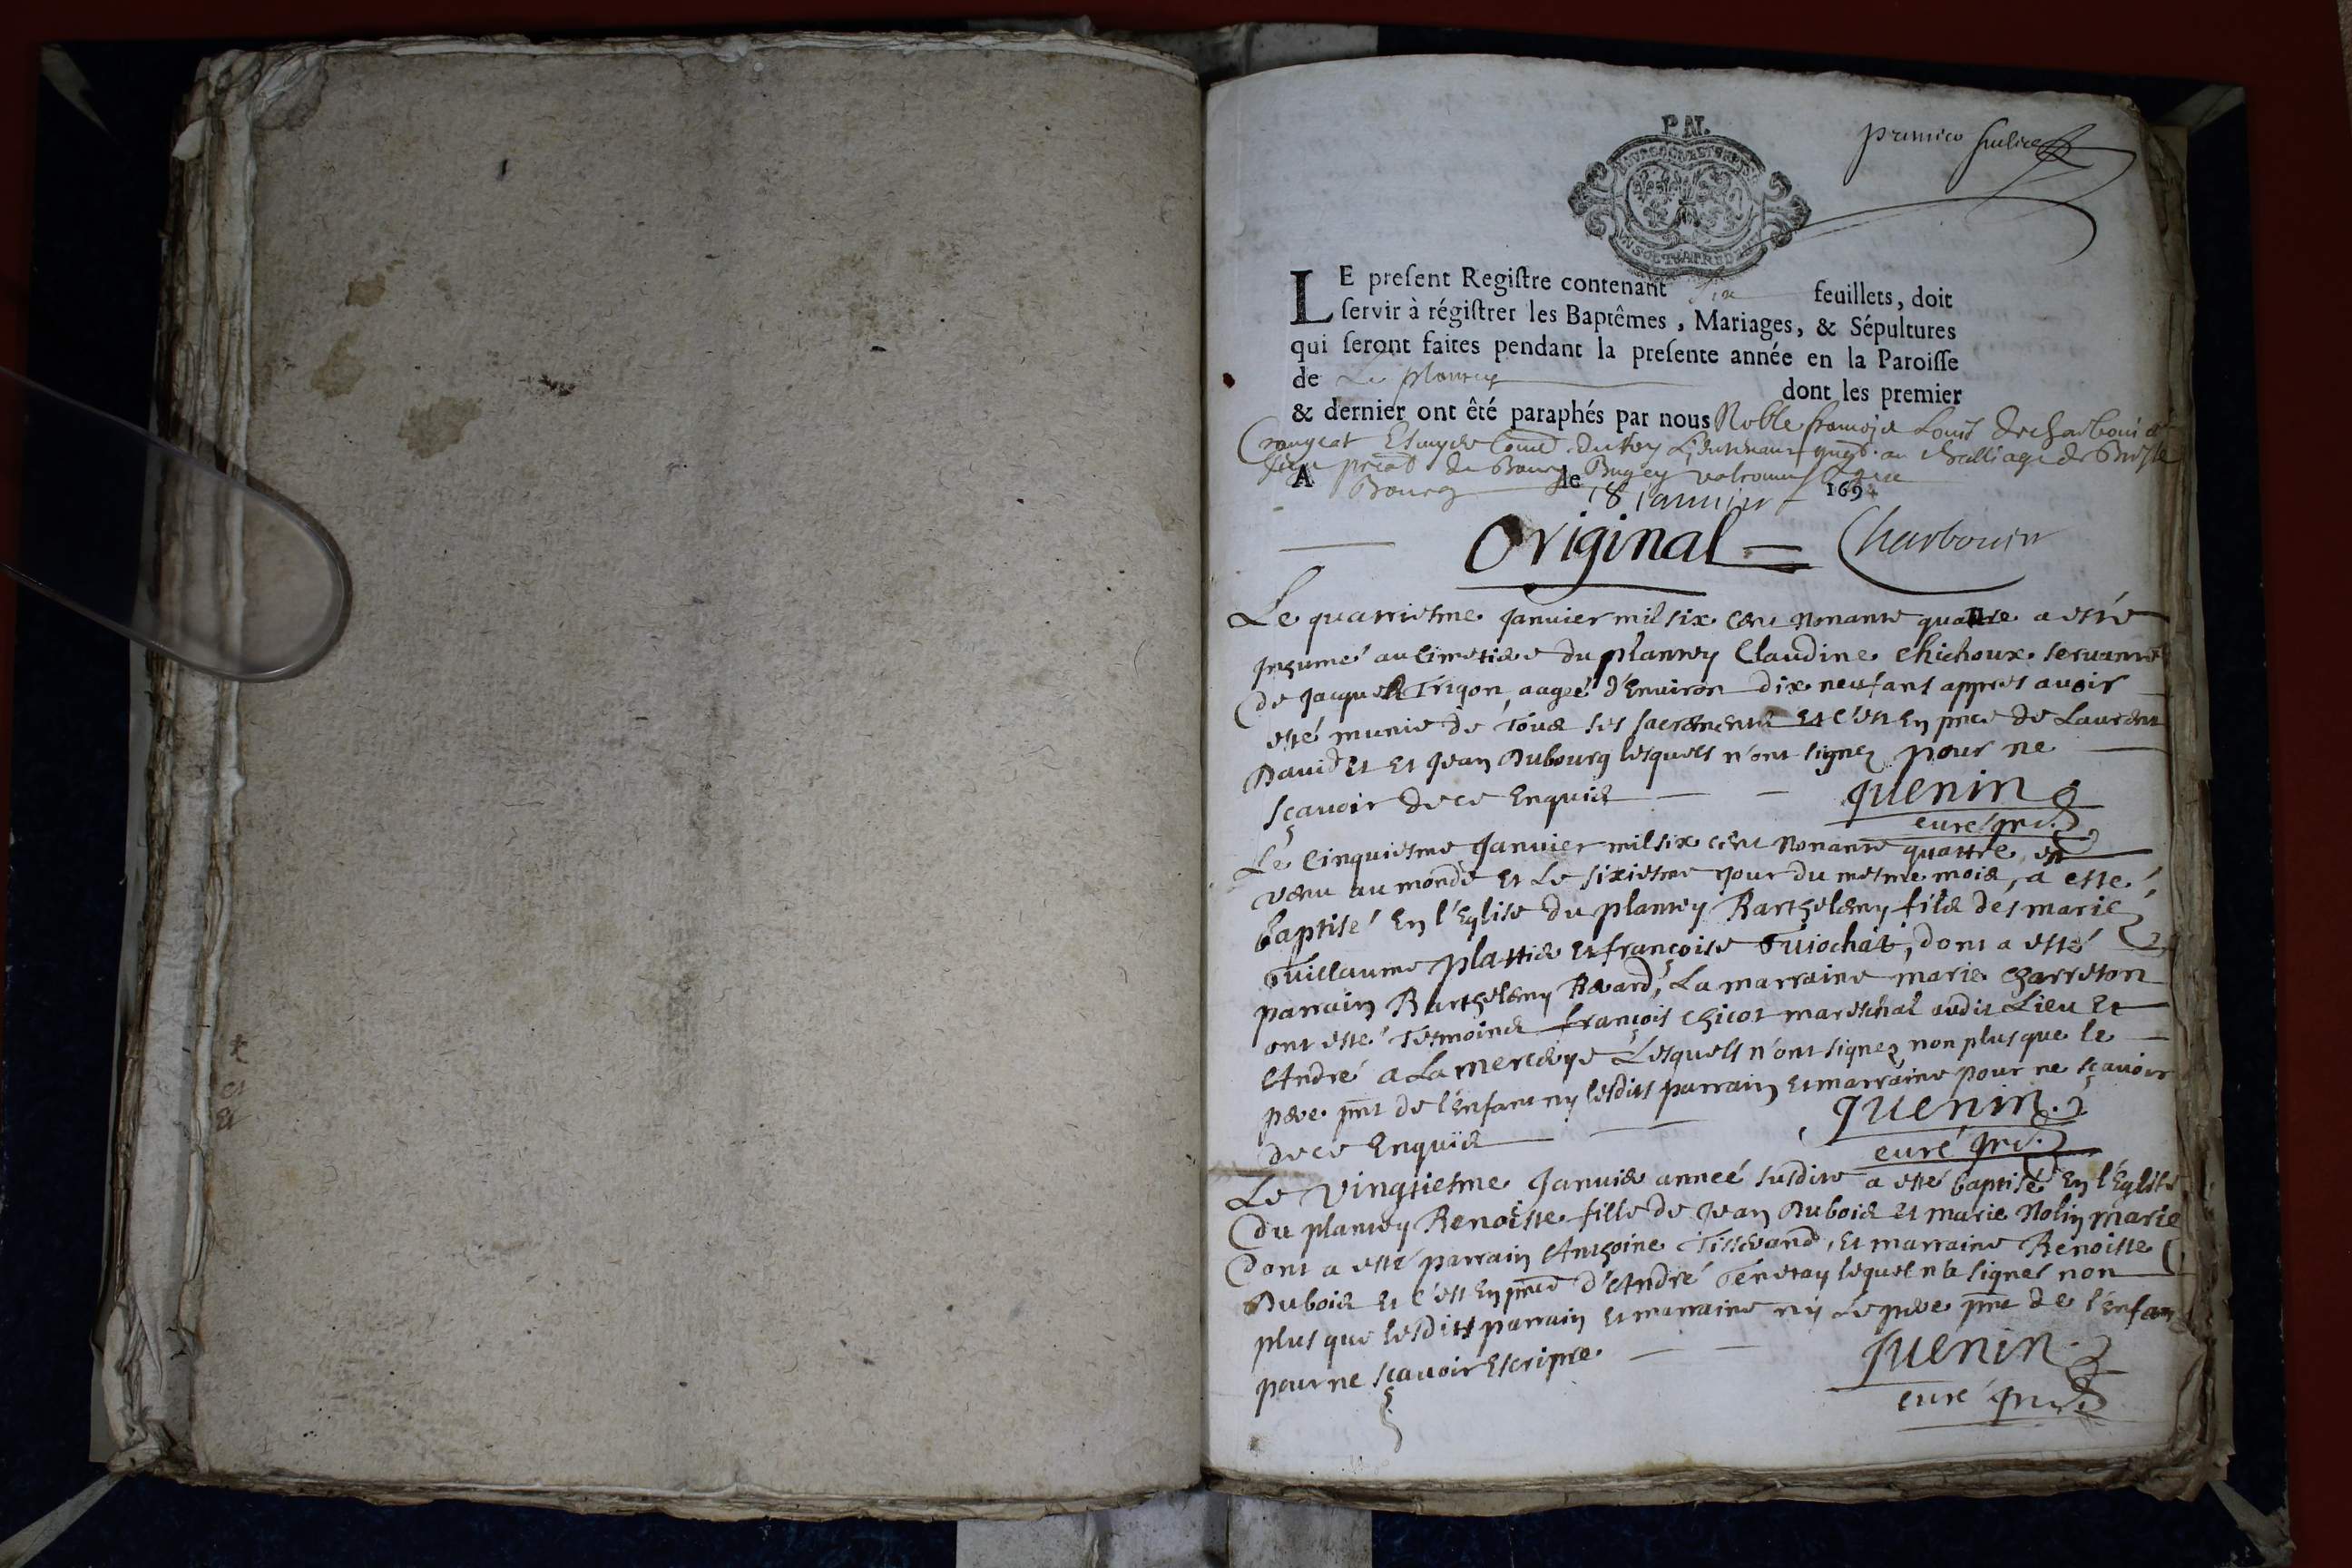 P.N.
premier feulliet
LE preſent Regiſtre contenant six feuillets, doit
ſervir à régiſtrer les Baptêmes, Mariages, & Sépultures
qui ſeront faites pendant la preſente année en la Paroiſſe
de Le plantey dont les premier
& dernier ont êté paraphés par nous Noble françois Louis de charbonier
Crangeat Escuyer Coner du Roy Lieutenant au Balliage de Bresse
de Bourg Bugey valromey gex
A Bourg le 18 ianvier 1694
Original = Charbonier
Le quatriesme Januier mil six cent nonante quattre a esté
jnhumé au cimetiere du plantey Claudine chichoux seruante
de jacques Trigon, aageé d'enuiron dix neuf ans appres auoir
esté munie de tous ses sacrements et c'est en pnce de Laurent
Dauid et et jean Dubourg lesquels n'ont signez pour ne
sçauoir de ce enquis
Juenin
curé
Le cinquiesme Januier mil six cent nonante quattre, est
venu au monde et le sixiesme jour du mesme mois, a esté
baptisé en l'Eglise du plantey Barthelemy fils des mariez
Guillaume plattier et françoise Guiochat, dont a esté
parrain Barthelemy Reuard, La marraine marie charreton
ont esté tesmoins françois chicot mareschal audit Lieu et
André a Lamercerye Lesquels n'ont signez non plus que le
pere pnt de l'enfant ny lesdits parrain et marraine pour ne sçauoir
de ce enquis
Juenin
curé
Le vingtiesme Januier anneé susdite a esté baptisé en l'Eglise
du plantey Benoiste fille de jean Dubois et marie Nolin marie
dont a esté parrain Anthoine Tisserand, et marraine Benoiste
Dubois et c'est en pnce d'André Teneray lequel n'a signes non
plus que lesdits parrain et marraine ny le pere pnt de l'enfan
pour ne sçauoir escripre
Juenin
curé